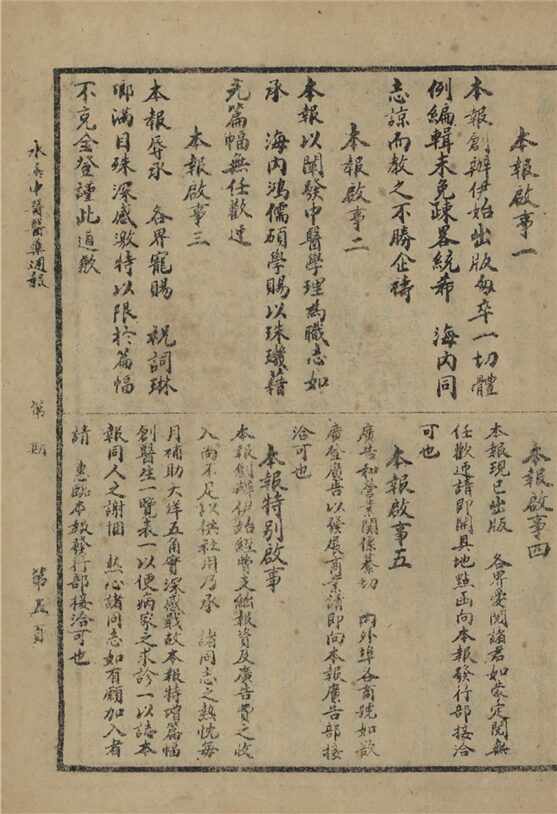 本報啟事一
本報創辦伊始出版匆卒一切體
例編輯未免疎畧統希　海內同
志諒而教之不勝企禱
本報啟事二
本報以闡發中醫學理為職志如
承　海內鴻儒碩學賜以珠璣藉
充篇幅無任歡迎
本報啟事三
本報辱承　各界寵賜　祝詞琳
瑯滿目殊深感激特以限於篇幅
不克全登謹此道歉
本報啟事四
本報現已出版　各界愛閱諸君如蒙定閱無
任歡迎請即開具地點函向本報發行部接洽
可也
本報啟事五
廣告和營業關係綦切　內外埠各商號如欲
廣登廣告以發展商業請即向本報廣告部接
洽可也
本報特別啟事
本報創辦伊始經費支絀報資及廣告費之收
入尚不足以供社用乃承　諸同志之熱忱每
月補助大洋五角實深感戢故本報特增篇幅
創醫生一覽表一以便病家之求診一以誌本
報同人之謝悃　熱心諸同志如有願加入者
請　惠臨本報發行部接洽可也
永春中醫醫藥週報　第　期　第五頁